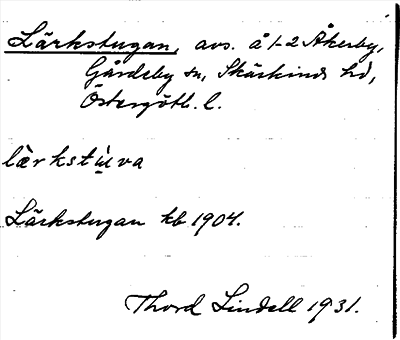 Lärkstugan, avs. å 1-2 Åkerby,
Gårdeby sn, Skärkinds hd,
Östergötl. l.
lὲrkstu̇va
Lärkstugan kb 1904.
Thord Lindell 1931.